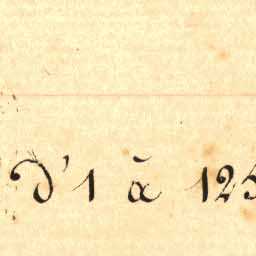 D'1 à 125